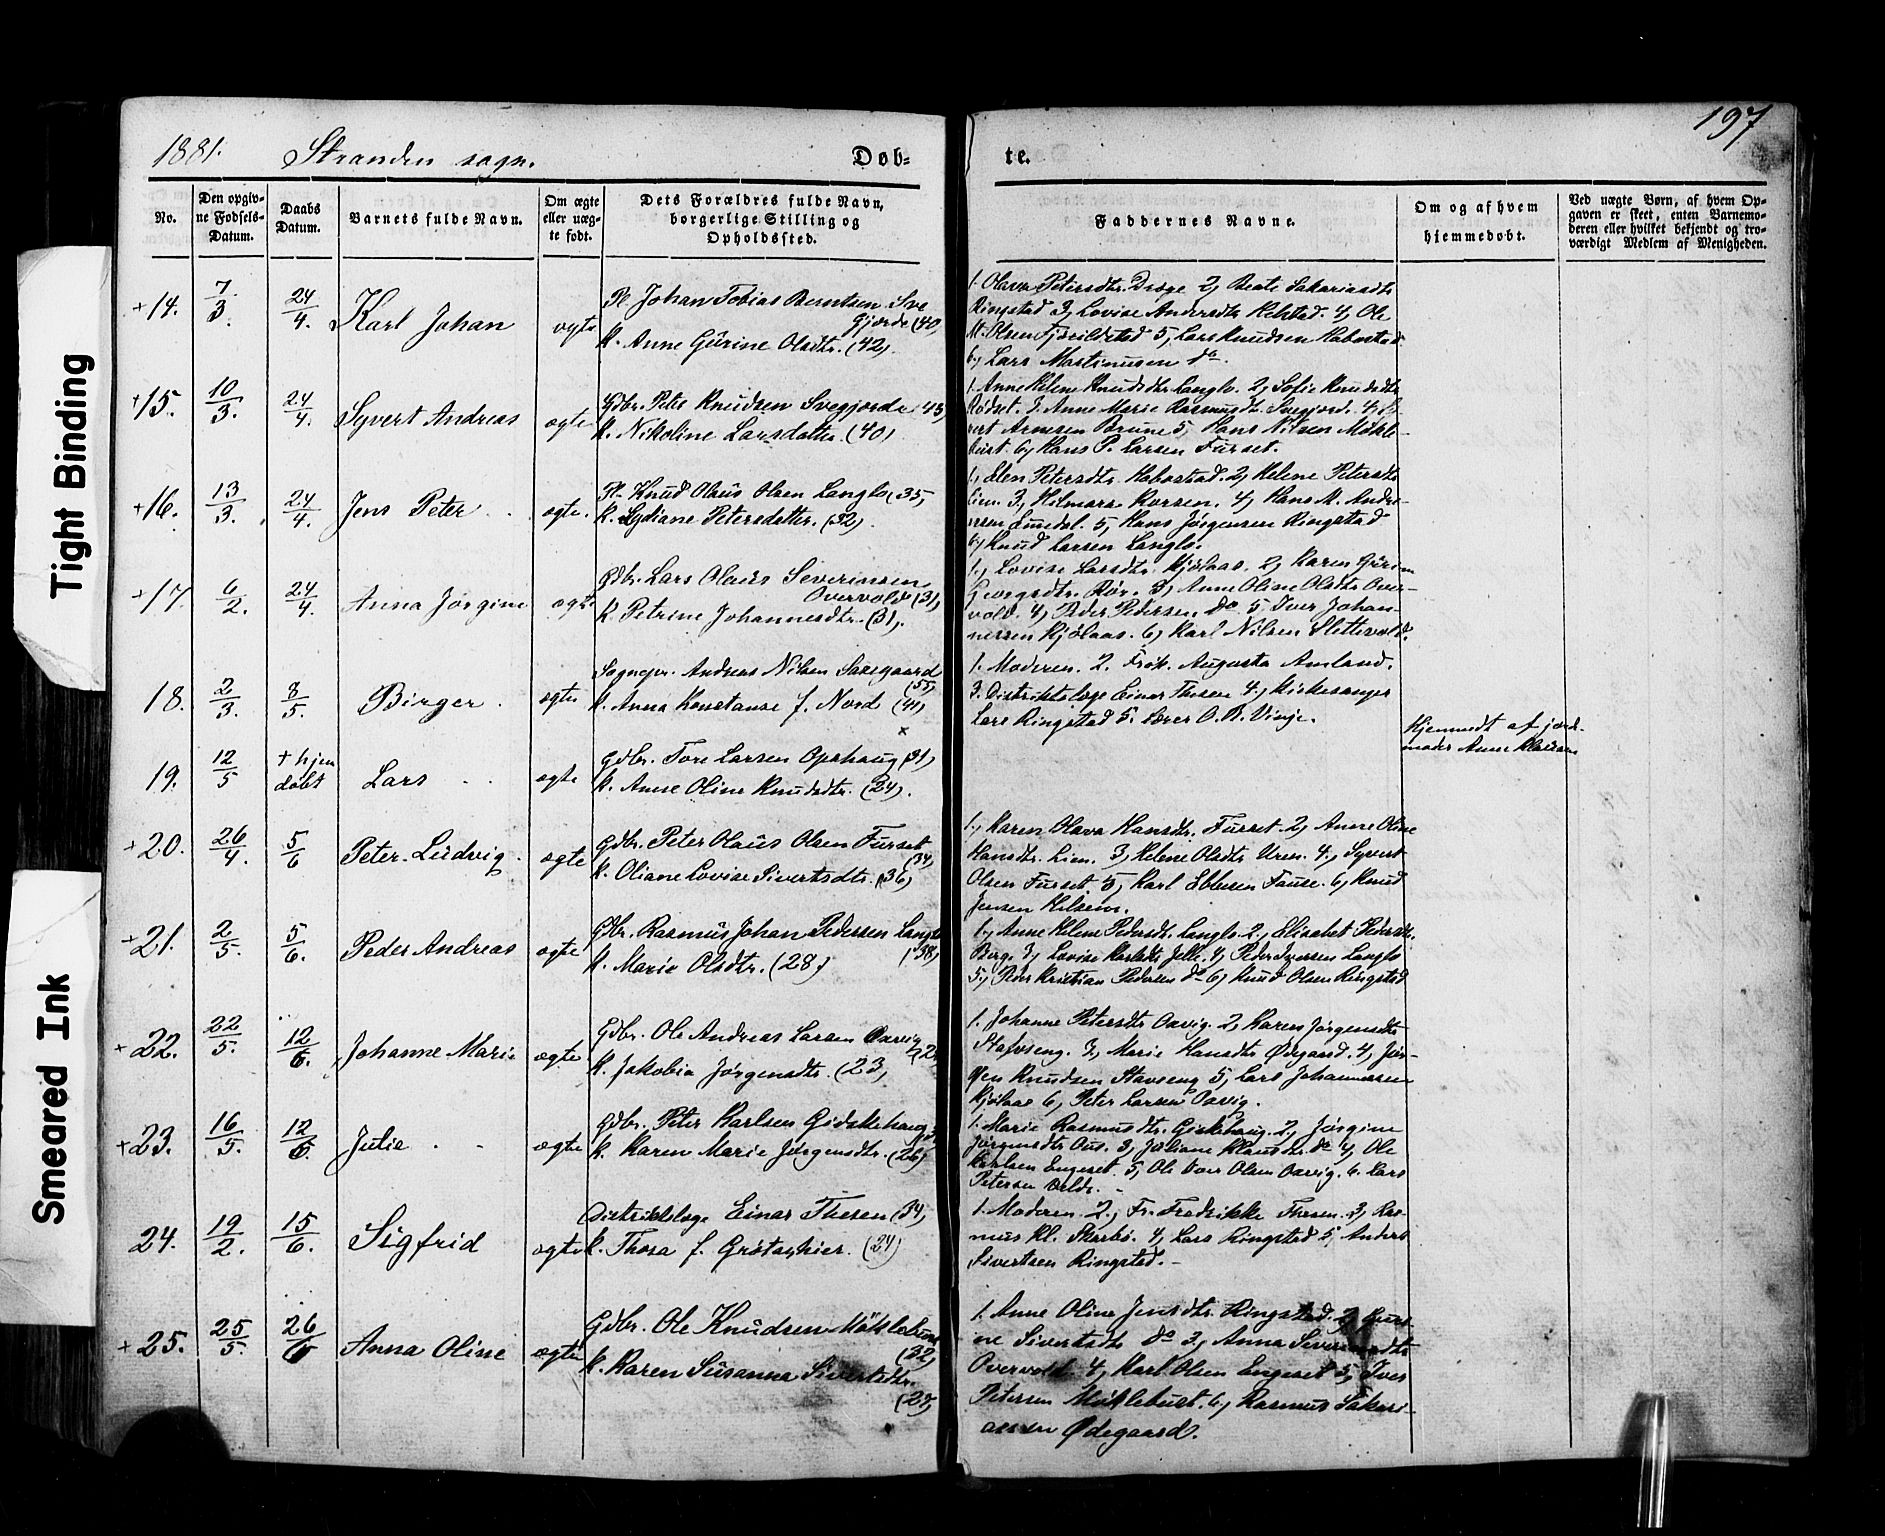 197
1881. Stranden sogn. Døb-
te.
No.
Den opgiv-
ne Fødsels-
Datum.
Daabs
Datum.
Barnets fulde Navn.
Om ægte
eller uæg-
te født.
Dets Forældres fulde Navn,
borgerlige Stilling og
Opholdssted.
Faddernes Navne.
Om og af hvem
hjemmedøbt.
Ved uægte Børn, af hvem Op-
gaven er skeet, enten Barnemo-
deren eller hvilket bekjendt og tro-
værdigt Medlem af Menigheden.
+14. 7/3. 24/4. Karl Johan ægte
Pl. Johan Tobias Berntsen Sve
Gjærde (40)
K. Anne Gurine Olsdtr. (42).
1. Olava Petersdtr. Drøge 2, Beate Sakariasdtr
Ringstad 3, Lovise Andersdtr Helstad. 4, Ole
M. Olsen 5, Lars Knudsen Habostad
6, Lars Martinusen do.
+15. 10/3. 24/4. Syvert Andreas ægte
Gdbr. Peter Knudsen Svegjærde 43,
K. Nikoline Larsdatter. (40)
1. Anne Helene Knudsdtr Langlo. 2, Sofie Knudsdtr
Rødset. 3. Anne Marie Rasmusdtr. Svegjerd. 4,
vert Arnesen Brune 5, Hans Nilsen Møkle-
bust. 6, Hans P. Larsen Furset.
+16. 13/3. 24/4. Jens Peter ægte.
Pl. Knud Olaus Olsen Langlo (35,
K. Lydiane Petersdatter. (32).
1, Elen Petersdtr. Habostad. 2, Helene Petersdtr
Lien. 3, Helmara Korsen. 4, Hans M. Andre-
5, Hans Jørgensen Ringstad
6, Knud Larsen Langlo.
+17. 6/2. 24/4. Anna Jørgine ægte
Gdbr. Lars Olaus Severinsen
Overvold (31,
K. Petrine Johannesdtr. (31).
1, Lovise Larsdtr. Kjølaas. 2, Karen Gurine
Georgsdtr. Rør. 3, Anne Oline Olsdtr Over-
vold. 4, Peder Pedersen do 5, Iver Johan-
nessen Kjølaas. 6, Karl Nilsen Slettevold.
18. 2/3. 8/5. Birger. ægte
Sognepr. Andreas Nilsen Saxegaard
(55)
K. Anna Konstanse f. Nord (41)
1. Moderen. 2. Frøk. Augusta Amland.
3. Distriktslæge Einar Thesen 4, Kirkesanger
Lars Ringstad 5. Lærer O. R. Vinje.
19. 12/5 + hjem
døbt Lars ægte
Gdbr. Tore Larsen Opshaug (31)
K. Anne Oline Knudsdtr. (24).
Hjemmedt af jord-
moder Anne
+20. 26/4. 5/6 Peter Ludvig. ægte
Gdbr. Peter Olaus Olsen Furset
(34)
K. Oliane Lovise Sivertsdtr. (36)
1, Karen Olava Hansdtr. Furset 2, Anne Oline
Hansdtr. Lien. 3, Helene Olsdtr Uren. 4., Syvert
Olsen Furset. 5, Karl Ebbesen Fause. 6, Knud
Jensen Helsem.
+21. 2/5 5/6. Peder Andreas ægte
Gdbr. Rasmus Johan Pedersen Langlo
(38)
K. Marie Olsdtr. (28)
1, Anne Helene Pedersdtr. Langlo 2., Elisabet Pedersdtr.
Berge. 3, Lovise Karlsdtr Jelle. 4, Peder Iversen Langlo
5., Peder Kristian Pedersen do 6, Knud Olsen Ringstad
+22. 22/5. 12/6. Johanne Marie ægte
Gdbr. Ole Andreas Larsen Oavig
K. Jakobia Jørgensdtr. (23,
1. Johanne Petersdtr Oavig. 2, Karen Jørgensdtr
Stafseng. 3., Marie Hansdtr Ødegaard. 4, Jør-
gen Knudsen Stavseng 5, Lars Johannessen
Kjølaas 6, Peter Larsen Oavig.
+23. 16/5. 12/6. Julie ægte
Gdbr. Peter Karlsen Gidskehaug
K. Karen Marie Jørgensdtr. (26).
1. Marie Rasmusdtr. Giskehaug. 2, Jørgine
Jørgensdtr Aus. 3, Juliane Klausdtr. do 4, Ole
Karlsen Engeset. 5, Ole Iver Olsen Oavig. 6. Lars
Petersen Velde.
24. 19/2. 15/6. Sigfrid ægte
Distriktslæge Einar Thesen (34,
K. Thora f. (24)
1. Moderen. 2., Fr. Fredrikke Thesen. 3, Ras-
mus Kl. Skarbø. 4, Lars Ringstad 5, Anders
Sivertsen Ringstad.
+25. 25/5. 26/6 Anna Oline ægte
Gdbr. Ole Knudsen Møklebust
(32)
K. Karen Susanna Sivertsdtr.
1. Anne Oline Jensdtr. Ringstad. 2,
ne Sivertsdtr do 3, Anna
Overvold. 4, Karl Olsen Engeset 5, Iver
Petersen Møklebust. 6, Rasmus Sakari-
assen Ødegaard.
Tight Binding
Smeared Ink